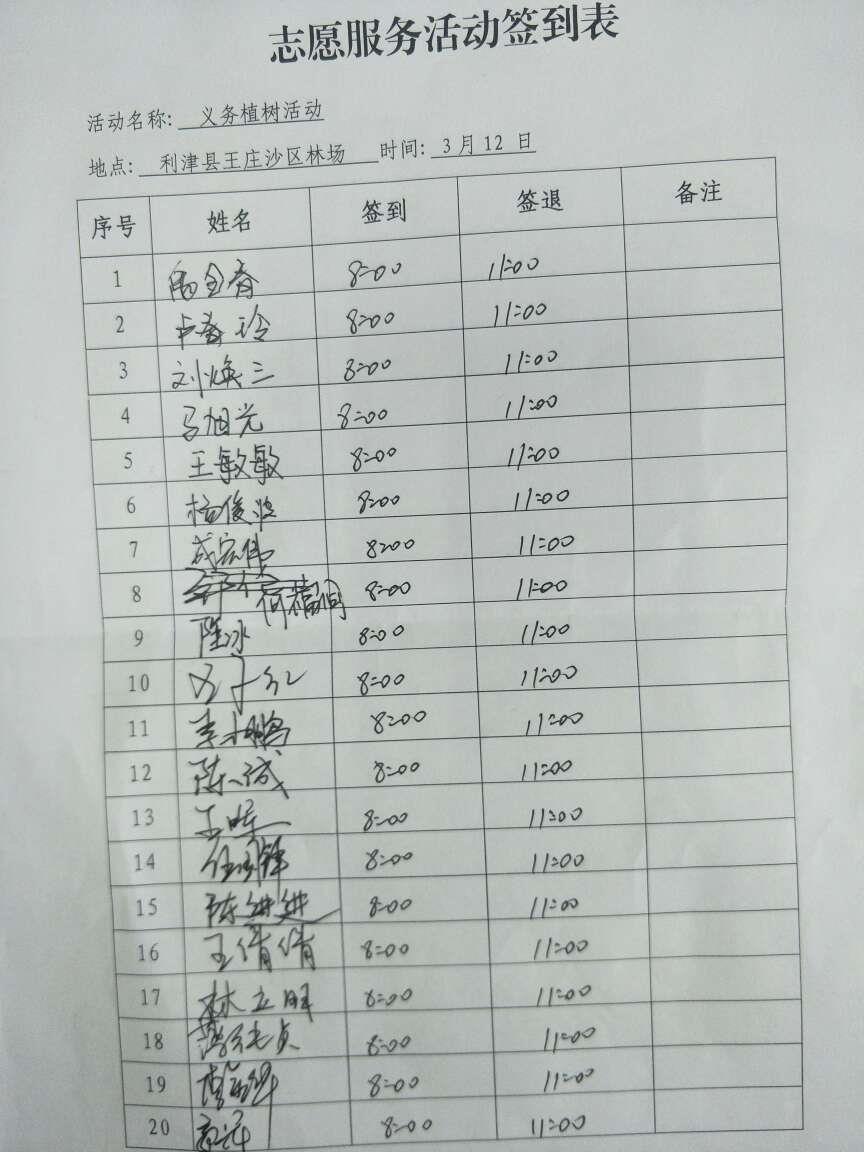 志愿服务活动签到表
活动名称: 义务植树活动
地点: 利津县王庄沙区林场 时间: 3月12日
序号 姓名 签到 签退 备注
1 8:00 11:00
2 8:00 11:00
3 刘焕三 8:00 11:00
4 马旭光 8:00 11:00
5 王敏敏 8:00 11:00
6 杨俊波 8:00 11:00
7 成宏伟 8:00 11:00
8 8:00 11:00
9 陈冰 8:00 11:00
10 8:00 11:00
11 李小鹏 8:00 11:00
12 8:00 11:00
13 8:00 11:00
14 8:00 11:00
15 陈进进 8:00 11:00
16 王倩倩 8:00 11:00
17 林立明 8:00 11:00
18 8:00 11:00
19 8:00 11:00
20 8:00 11:00